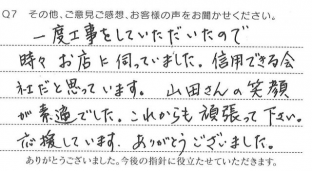 Q7 その他、ご意見ご感想、お客様の声をお聞かせください。
一度工事をしていただいたので
時々お店に伺っていました。信用できる会
社だと思っています。山田さんの笑顔
が素適でした。これからも頑張って下さい。
応援しています。ありがとうございました。
ありがとうございました。今後の指針に役立たせていただきます。